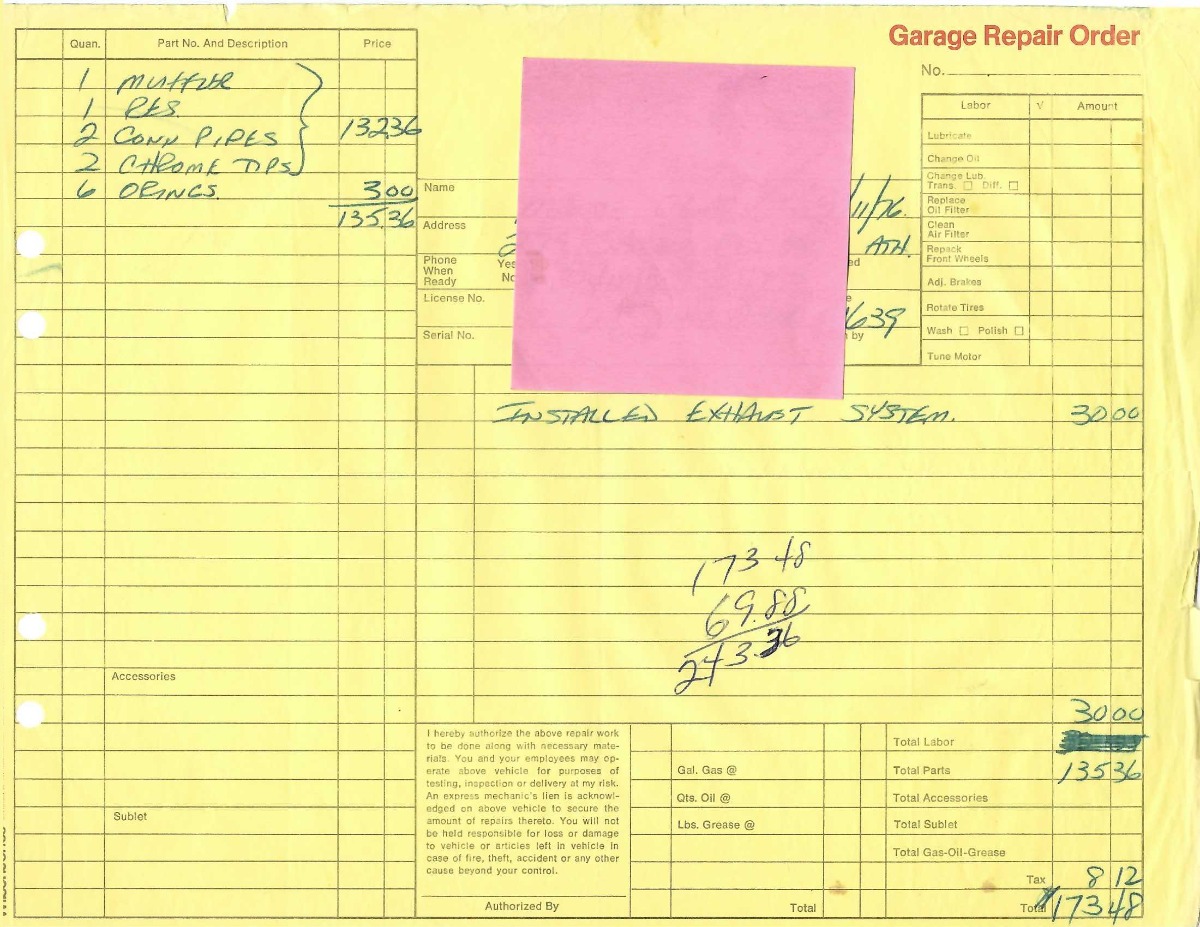 Garage Repair Order
No.
Quan. Part No. And Description Price
1 MUFFLER
1 RES.
2 CONN PIPES 132 36
2 CHROME TIPS
6 ORINGS. 3 00
135.36
Accessories
Sublet
Name
Address
Phone
When
Ready
Yes
No
License No.
Serial No.
/11/76.
ATH.
ed
e
1639
n by
Labor √ Amount
Lubricate
Change Oil
Change Lub.
Trans. ☐ Diff. ☐
Replace
Oil Filter
Clean
Air Filter
Repack
Front Wheels
Adj. Brakes
Rotate Tires
Wash ☐ Polish ☐
Tune Motor
INSTALLED EXHAUST SYSTEM. 30 00
173 48
69.88
243.36
30 00
I hereby authorize the above repair work
to be done along with necessary mate-
rials. You and your employees may op-
erate above vehicle for purposes of
testing, inspection or delivery at my risk.
An express mechanic's lien is acknowl-
edged on above vehicle to secure the
amount of repairs thereto. You will not
be held responsible for loss or damage
to vehicle or articles left in vehicle in
case of fire, theft, accident or any other
cause beyond your control.
Authorized By
Gal. Gas @
Qts. Oil @
Lbs. Grease @
Total
Total Labor
Total Parts 135 36
Total Accessories
Total Sublet
Total Gas-Oil-Grease
Tax 8 12
Total 173 48